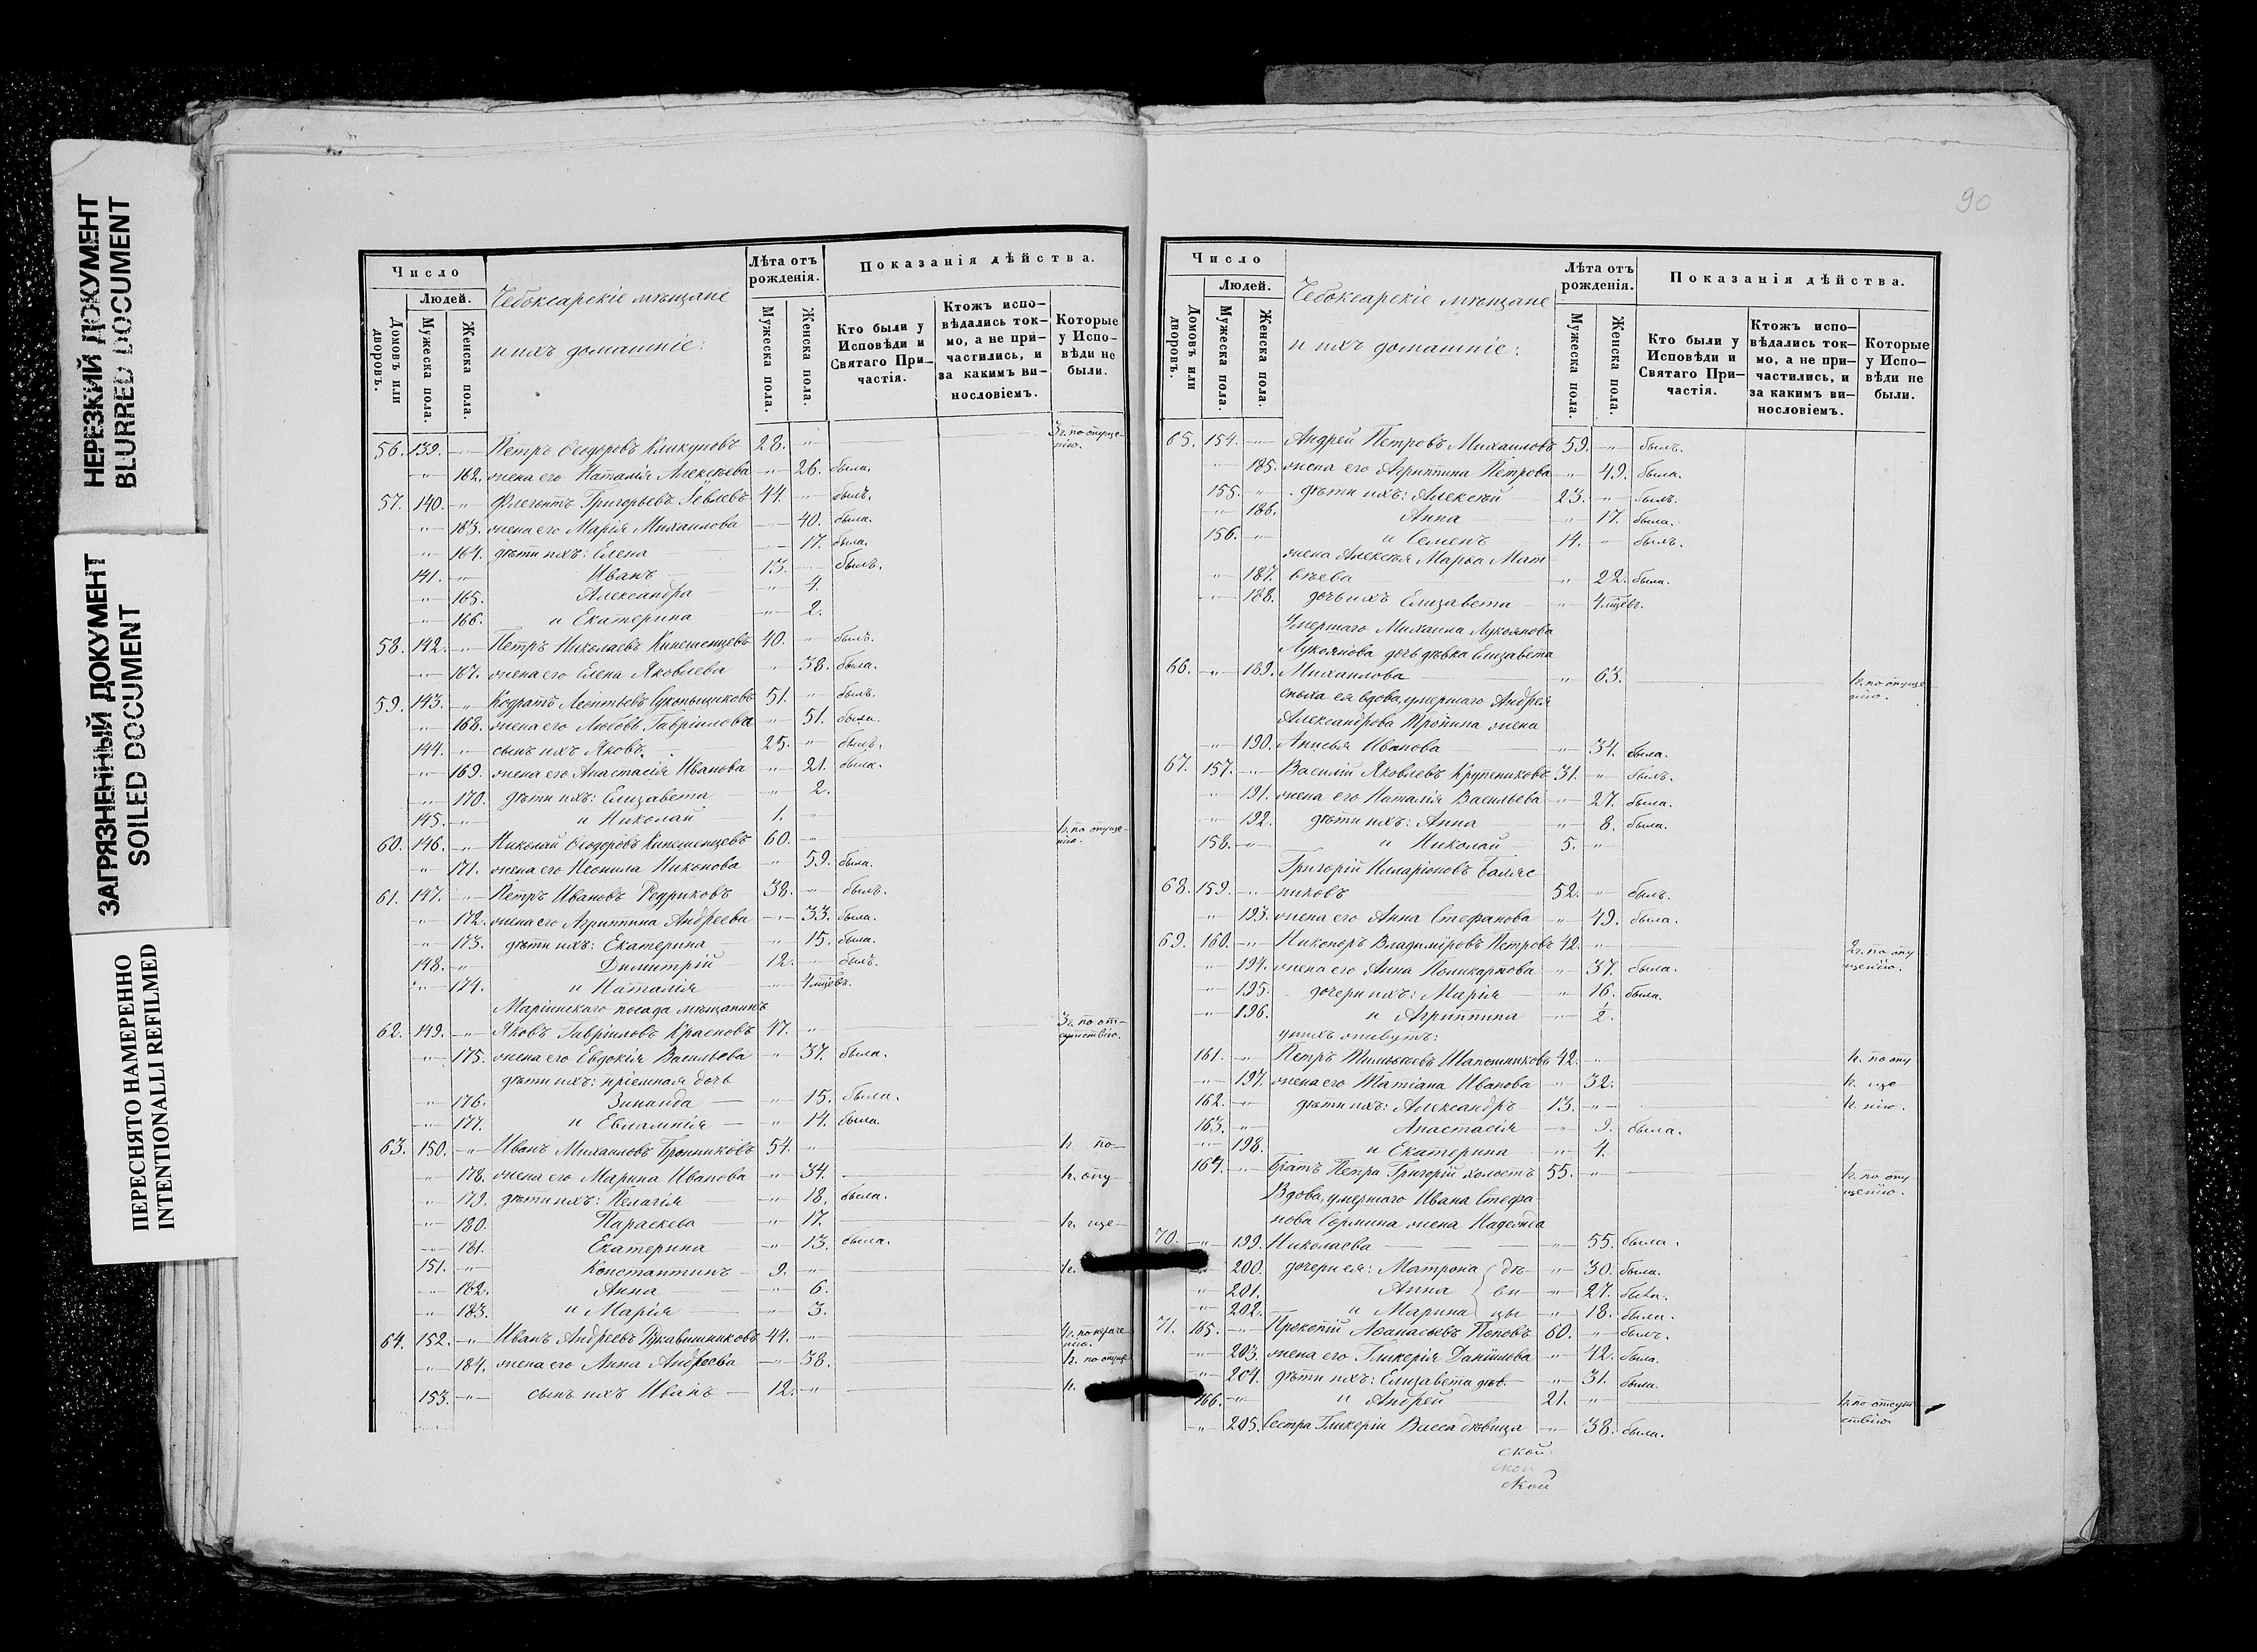 НЕРЕЗКИЙ ДОКУМЕНТ
BLURRED DOCUMENT
ЗАГРЯЗНЕННЫЙ ДОКУМЕНТ
SOILED DOCUMENT
ПЕРЕСНЯТО НАМЕРЕННО
INTENTIONALLI REFILMED
Число
Людей.
Домовъ или дворовъ.
Мужеска пола.
Женска пола.
Чебоксарскіе мѣщане
и ихъ домашніе:
Лѣта отъ рожденія.
Мужеска пола.
Женска пола.
Показанія дѣйства.
Кто были у Исповѣди и Святаго При-частія.
Ктожъ испо-вѣдались ток-мо, а не при-частились, и за какимъ ви-нословіемъ.
Которые у Испо-вѣди не были.
56. 139. -"- Петръ Ѳеодоровъ Кликуновъ 28. " 3 г. по опуще-нію.
-"- 162. жена его Наталія Алексѣева " 26. была.
57. 140. -"- Флегонтъ Григорьевъ 44. " былъ.
-"- 163. жена его Марія Михаилова " 40. была.
-"- 164. дѣти ихъ: Елена " 17. была.
141. -"- Иванъ 13. " былъ.
-"- 165. Александра " 4.
-"- 166. и Екатерина " 2.
58. 142. -"- Петръ Николаевъ Кинешемцевъ 40. " былъ.
-"- 167. жена его Елена Яковлева " 38. была.
59. 143. " Кодратъ Леонтьевъ 51. " былъ.
" 168. жена его Любовь Гавріилова " 51. была.
144. " сынъ ихъ Яковъ 25. " былъ.
-"- 169. жена его Анастасія Иванова " 21. была.
-"- 170. дѣти ихъ: Елизавета " 2.
145. -"- и Николай 1. "
60. 146. -"- Николай Ѳеодоровъ Кинешемцевъ 60. " по опуще-нію.
" 171. жена его Неонила Никонова " 59. была.
61. 147. -"- Петръ Ивановъ Редриковъ 38. " былъ.
" 172. жена его Агриппина Андреева -"- 33. была.
-"- 173. дѣти ихъ: Екатерина " 15. была.
148. " Димитрій 12. " былъ.
-"- 174. и Наталія " 4 мцевъ.
Маріинскаго посада мѣщанинъ
62. 149. -"- Яковъ Гавріиловъ Красновъ 47. " 3 г. по от-сутствію.
-"- 175. жена его Евдокія Васильева " 37. была.
дѣти ихъ: пріемная дочь
-"- 176. Зинаида " 15. была.
-"- 177. и Евлампія " 14. была.
63. 150. -"- Иванъ Михаиловъ Бронниковъ 54. " по-
-"- 178. жена его Марина Иванова " 34. опу-
-"- 179. дѣти ихъ: Пелагія " 18. была.
-"- 180. Параскева " 17. ще-
-"- 181. Екатерина -"- 13. была.
151. -"- Константинъ 9. "
-"- 182. Анна " 6.
-"- 183. и Марія " 3.
64. 152. -"- Иванъ Андреевъ Рукавишниковъ 44. -"-
-"- 184. жена его Анна Андреева -"- 38. по опуще-
153. -"- сынъ ихъ Иванъ 12. -"-
90
Число
Людей.
Домовъ или дворовъ.
Мужеска пола.
Женска пола.
Чебоксарскіе мѣщане
и ихъ домашніе:
Лѣта отъ рожденія.
Мужеска пола.
Женска пола.
Показанія дѣйства.
Кто были у Исповѣди и Святаго При-частія.
Ктожъ испо-вѣдались ток-мо, а не при-частились, и за какимъ ви-нословіемъ.
Которые у Испо-вѣди не были.
65. 154. -"- Андрей Петровъ Михаиловъ 59. -"- былъ.
-"- 185. жена его Агриппина Петрова -"- 49. была.
155. -"- дѣти ихъ: Алексѣй 23. " былъ.
-"- 186. Анна " 17. была.
156. -"- и Семенъ 14. " былъ.
жена Алексѣя Марѳа Мат
-"- 187. вѣева " 22. была.
-"- 188. дочь ихъ Елизавета " 4 мцевъ.
Умершаго Михаила Лукоянова
Лукоянова дочь дѣвка Елизавета
66. -"- 189. Михаилова " 63. по опуще-нію.
сноха ея вдова, умершаго Андрея
Александрова Тронина жена
-"- 190. Анисья Иванова " 34. была.
67. 157. -"- Василій Яковлевъ Крупениковъ 31. " былъ.
-"- 191. жена его Наталія Васильева -"- 27. была.
-"- 192. дѣти ихъ: Анна " 8. была.
158. -"- и Николай 5. -"-
Григорій Илларіоновъ Баляс
68. 159. -"- никовъ 52. -"- былъ.
" 193. жена его Анна Стефанова " 49. была.
69. 160. -"- Никаноръ Владиміровъ Петровъ 42. -"- 2 г. по опу щенію.
" 194. жена его Анна Поликарпова " 37. была.
" 195. дочери ихъ: Марія " 16. была.
-"- 196. и Агриппина -"- 2.
у нихъ живутъ:
161. -"- Петръ Тимоѳеевъ Шапошниковъ 42. -"- по опу
-"- 197. жена его Татіана Иванова -"- 32. ще
162. -"- дѣти ихъ: Александръ 13. -"- нію.
163. -"- Анастасія -"- 9. была.
-"- 198. и Екатерина -"- 4.
164. -"- Братъ Петра Григорій холостъ 55. -"- по опу щенію.
Вдова, умершаго Ивана Стефа
нова Сормина жена Надежда
70. " 199. Николаева " 55. была.
200. дочери ея: Матрона дѣ -"- 30. была.
" 201. Анна ви -"- 27. была.
-"- 202. и Марина цы -"- 18. была.
71. 165. -"- Прокопій Аѳанасьевъ Поповъ 60. " былъ.
-"- 203. жена его Гликерія Даніилова -"- 42. была.
-"- 204. дѣти ихъ: Елизавета дѣв. -"- 31. была.
166. -"- и Андрей 21. " по отсут ствію
-"- 205. Сестра Гликеріи Васса дѣвица -"- 38. была.
ской
ской
ской